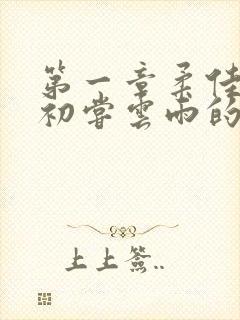 第一章柔佳
初尝云雨的
上上签..